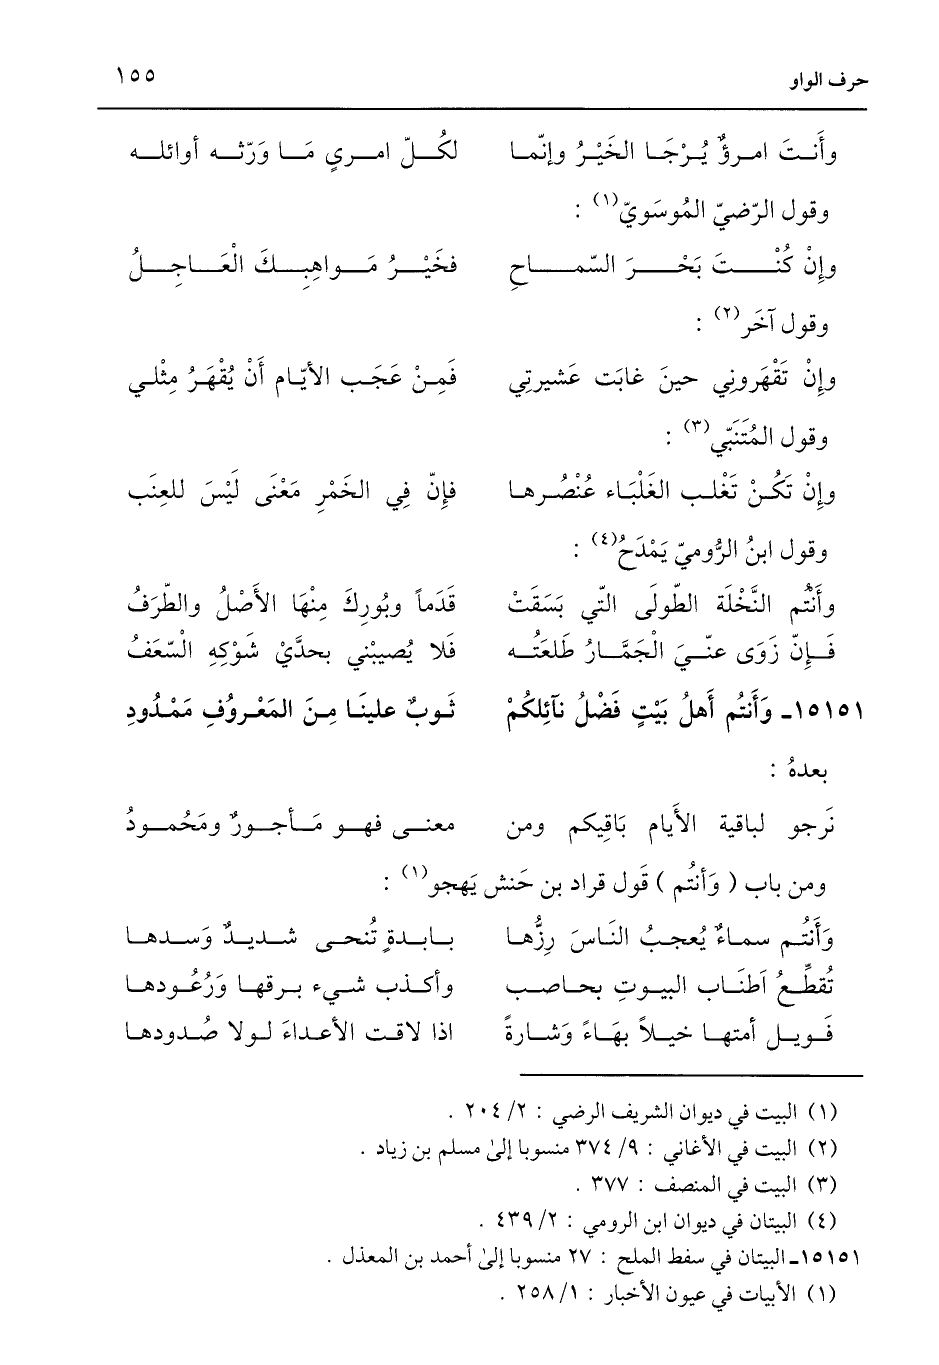 حرف الواو ١٥٥
وأَنتَ امرؤٌ يُرْجَا الخَيْرُ وإنّما لكُلّ امريٍ مَا وَرّثه أوائله
وقول الرّضيّ المُوسَوِيّ(١) :
وإنْ كُنْتَ بَحْرَ السّماحِ فخَيْرُ مَواهِبِكَ الْعَاجِلُ
وقول آخَر(٢) :
وإنْ تَقْهَروني حينَ غابَت عَشيرتي فَمِنْ عَجَبِ الأيّام أَنْ يُقْهَرُ مِثْلي
وقول المُتَنَبّي(٣) :
وإنْ تَكُنْ تَغْلب الغَلْبَاء عُنْصُرها فإنّ فِي الخَمْرِ مَعْنَى لَيْسَ للعِنَب
وقول ابنُ الرُّوميّ يَمْدَحُ(٤) :
وأنْتُم النَّخْلَة الطّولَى التّي بَسَقَتْ قَدَماً وبُورِكَ مِنْهَا الأَصْلُ والطّرَفُ
فإنّ زَوَى عنّيَ الْجَمَّارُ طَلعَتُه فَلا يُصيبْني بحدَّيْ شَوْكِهِ السّعَفُ
١٥١٥١ـ وَأَنتُم أَهلُ بَيْتٍ فَضْلُ نآئِلِكُمْ ثَوبٌ علينَا مِنَ المَعْروُفِ مَمْدُودِ
بعدهُ :
نَرجو لباقية الأَيام بَاقِيكم ومن معنى فهو مَأجورٌ ومَحُمودُ
ومن باب ( وَأنتُم ) قَول قراد بن حَنش يَهجو(١) :
وَأَنتُم سماءٌ يُعجبُ النَاسَ رِزُّها بابدةٍ تُنحى شديدٌ وَسدها
تُقطِّعُ اَطنَاب البيوتِ بحاصب وأكذب شيء برقها وَرُعُودها
فَويل أمتها خيلاً بهَاءً وَشارةً اذا لاقت الأعداءَ لولا صُدودها
(١) البيت في ديوان الشريف الرضي : ٢/ ٢٠٤ .
(٢) البيت في الأغاني : ٩/ ٣٧٤ منسوبا إلىٰ مسلم بن زياد .
(٣) البيت في المنصف : ٣٧٧ .
(٤) البيتان في ديوان ابن الرومي : ٢/ ٤٣٩ .
١٥١٥١ـ البيتان في سفط الملح : ٢٧ منسوبا إلىٰ أحمد بن المعذل .
(١) الأبيات في عيون الأخبار : ١/ ٢٥٨ .